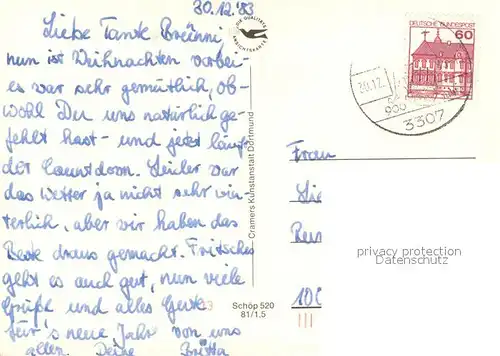 30.12.83
Liebe Tante Brünni
nun ist Weihnachten vorbei -
es war sehr gemütlich, ob-
wohl Du uns natürlich ge-
fehlt hast - und jetzt läuft
der Countdown. Leider war
das Wetter ja nicht sehr win-
terlich, aber wir haben das
Beste draus gemacht. Fritsches
geht es auch gut, nun viele
Grüße und alles Gute
für's neue Jahr von uns
allen Deine Britta
DIE QUALITÄTS
ANSICHTSKARTE
Cramers Kunstanstalt Dortmund
Schöp 520
81/1.5
DEUTSCHE BUNDESPOST
60
30.12.
900
3307
Frau
privacy protection
Datenschutz